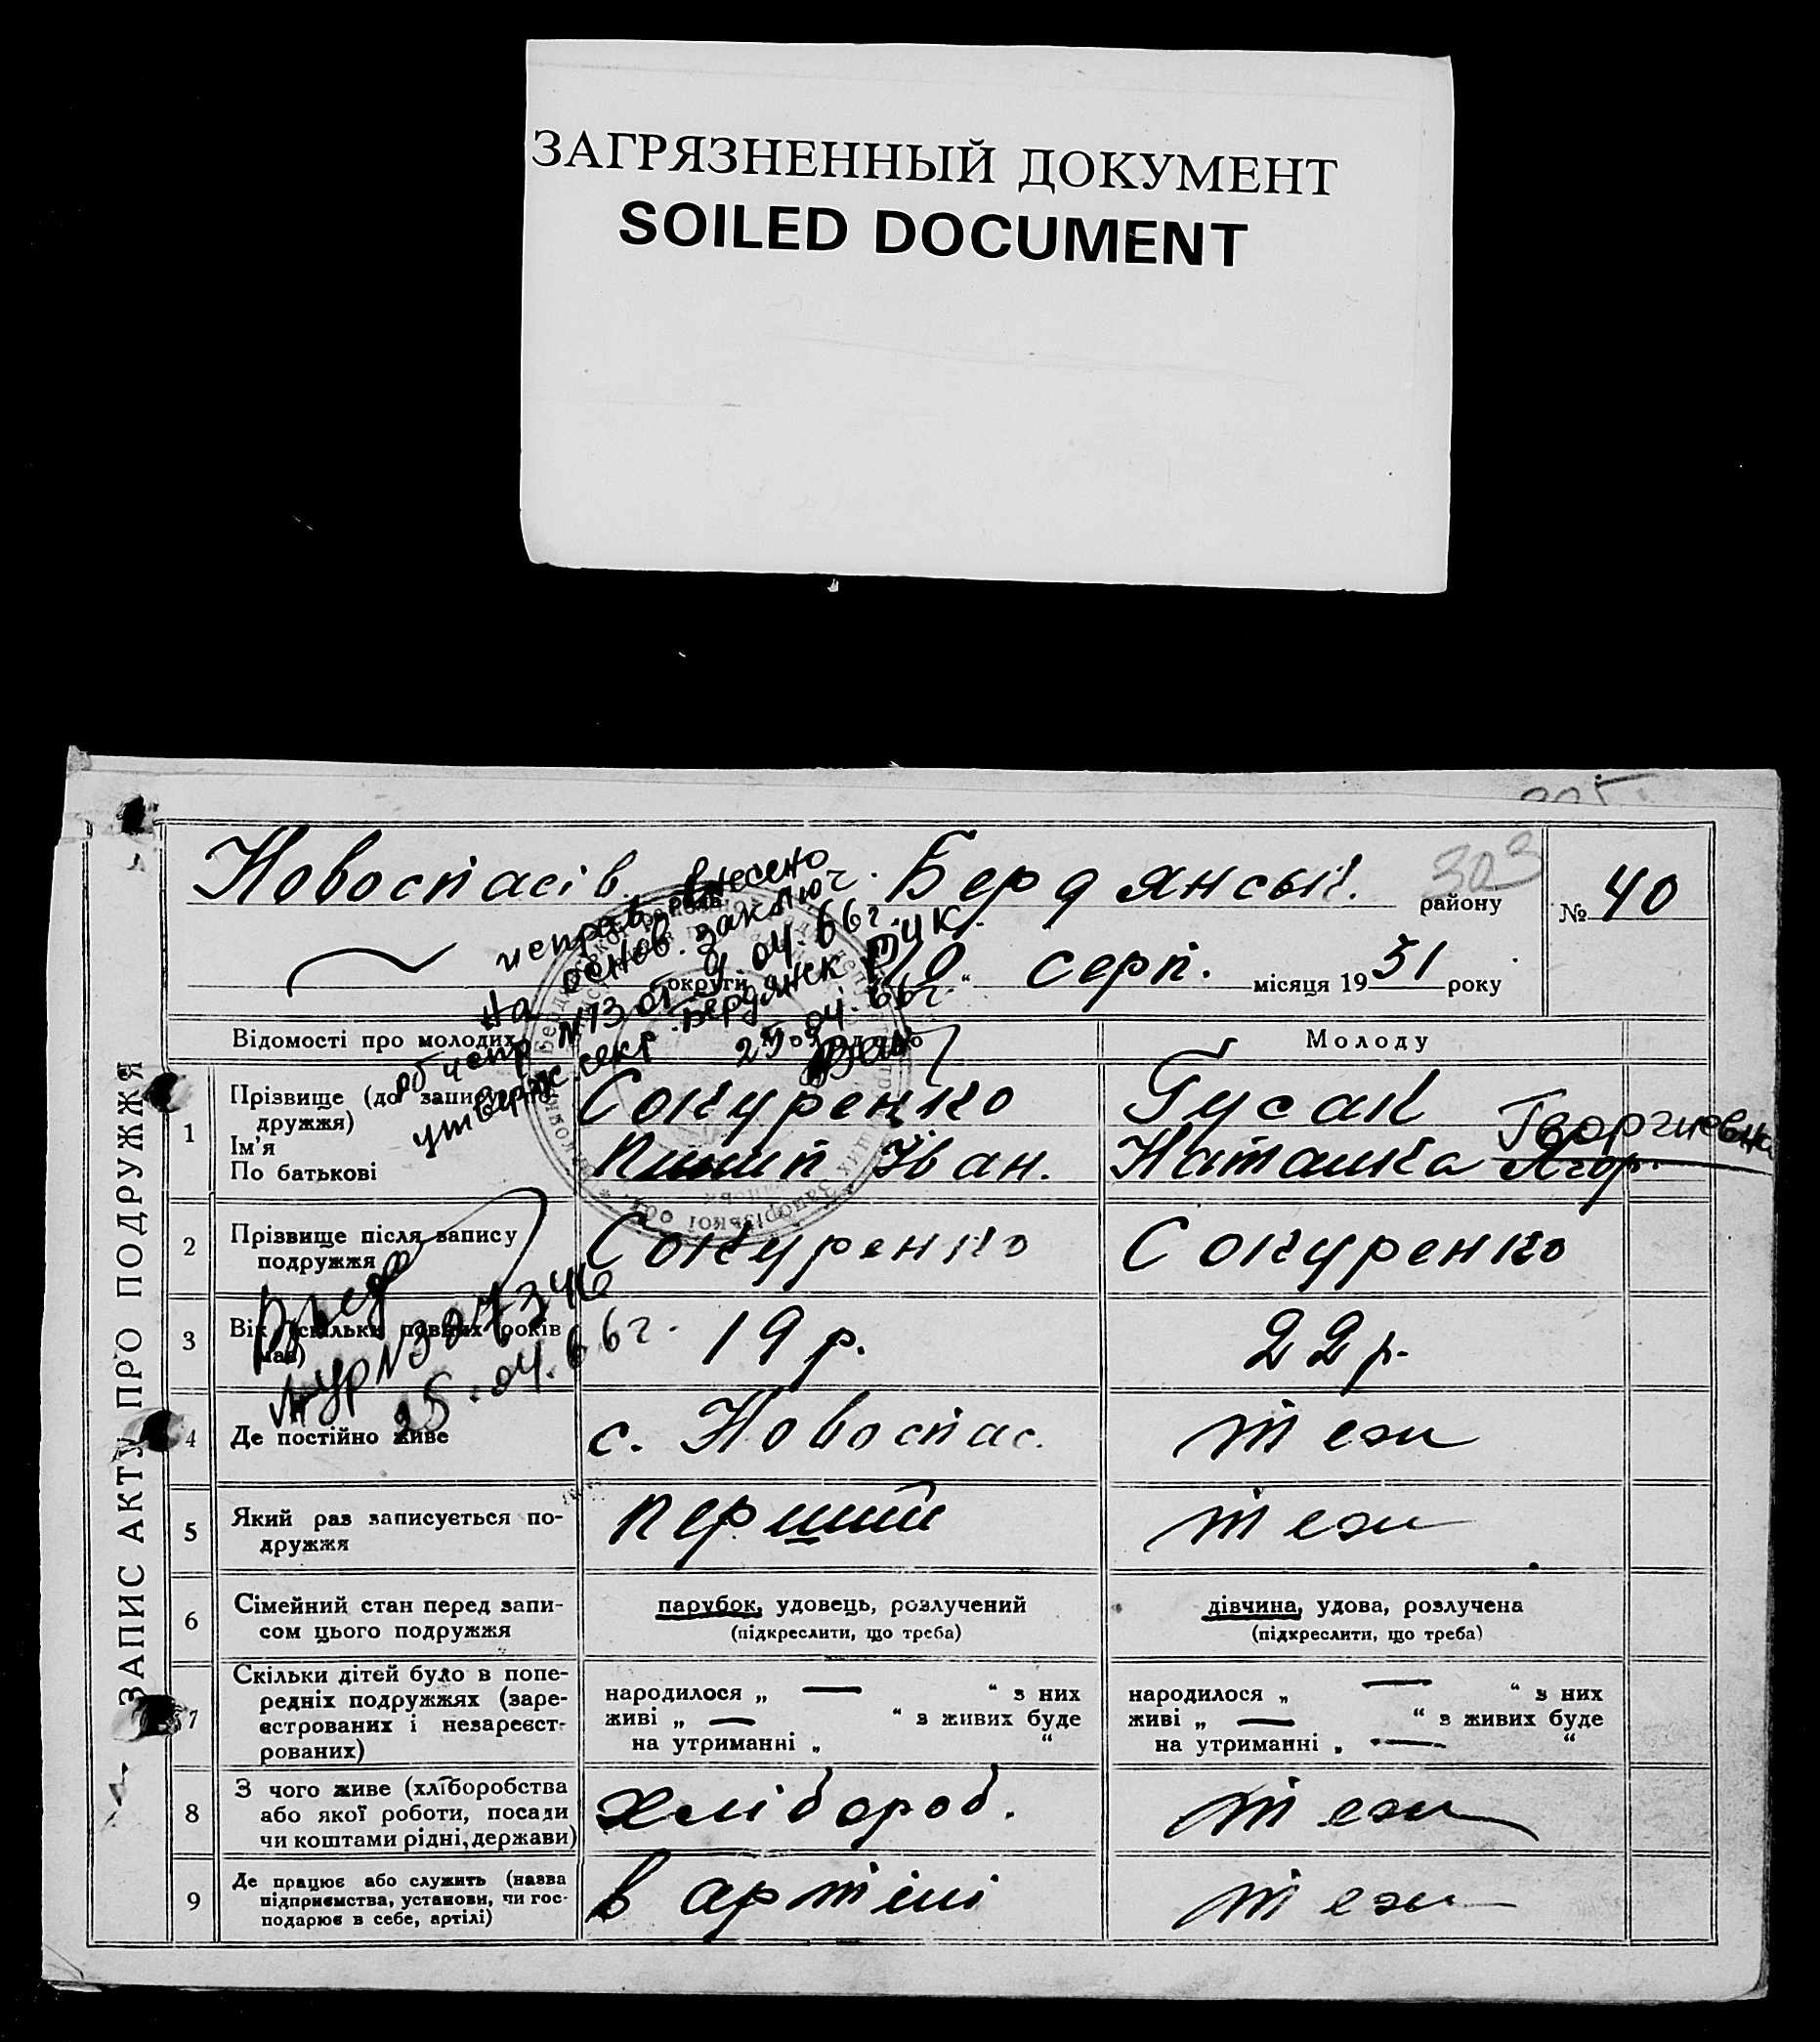 ЗАГРЯЗНЕННЫЙ ДОКУМЕНТ
SOILED DOCUMENT
303
Новоспасів. Бердянськ. району
№ 40
округи
20 " серп. місяця 1931 року
исправ. внесено
на основ. заключ.
об испр. №1301 9.04.66г.
утверж. секр. Бердянск
25.04.66г.
ЗАПИС АКТУ ПРО ПОДРУЖЖЯ
Відомості про молодих
Молоду
1
Прізвище (до запису по-
дружжя)
Ім'я
По батькові
Сокуренко
Пилип Іван.
Гусак
Наташка Ягор.
Георгиевна
2
Прізвище після запису
подружжя
Сокуренко
Сокуренко
3
Вік (скільки повних років
має)
19 р.
22 р.
25.04.66г.
4
Де постійно живе
с. Новоспас.
теж
5
Який раз записується по-
дружжя
перший
теж
6
Сімейний стан перед запи-
сом цього подружжя
парубок, удовець, розлучений
(підкреслити, що треба)
дівчина, удова, розлучена
(підкреслити, що треба)
7
Скільки дітей було в попе-
редніх подружжях (заре-
єстрованих і незареєст-
рованих)
народилося „ — “ з них
живі „ — “ з живих буде
на утриманні „ “
народилося „ — “ з них
живі „ — “ з живих буде
на утриманні „ — “
8
З чого живе (хліборобства
або якої роботи, посади
чи коштами рідні, держави)
хлібороб.
теж
9
Де працює або служить (назва
підприємства, установи, чи гос-
подарює в себе, артілі)
в артілі
теж